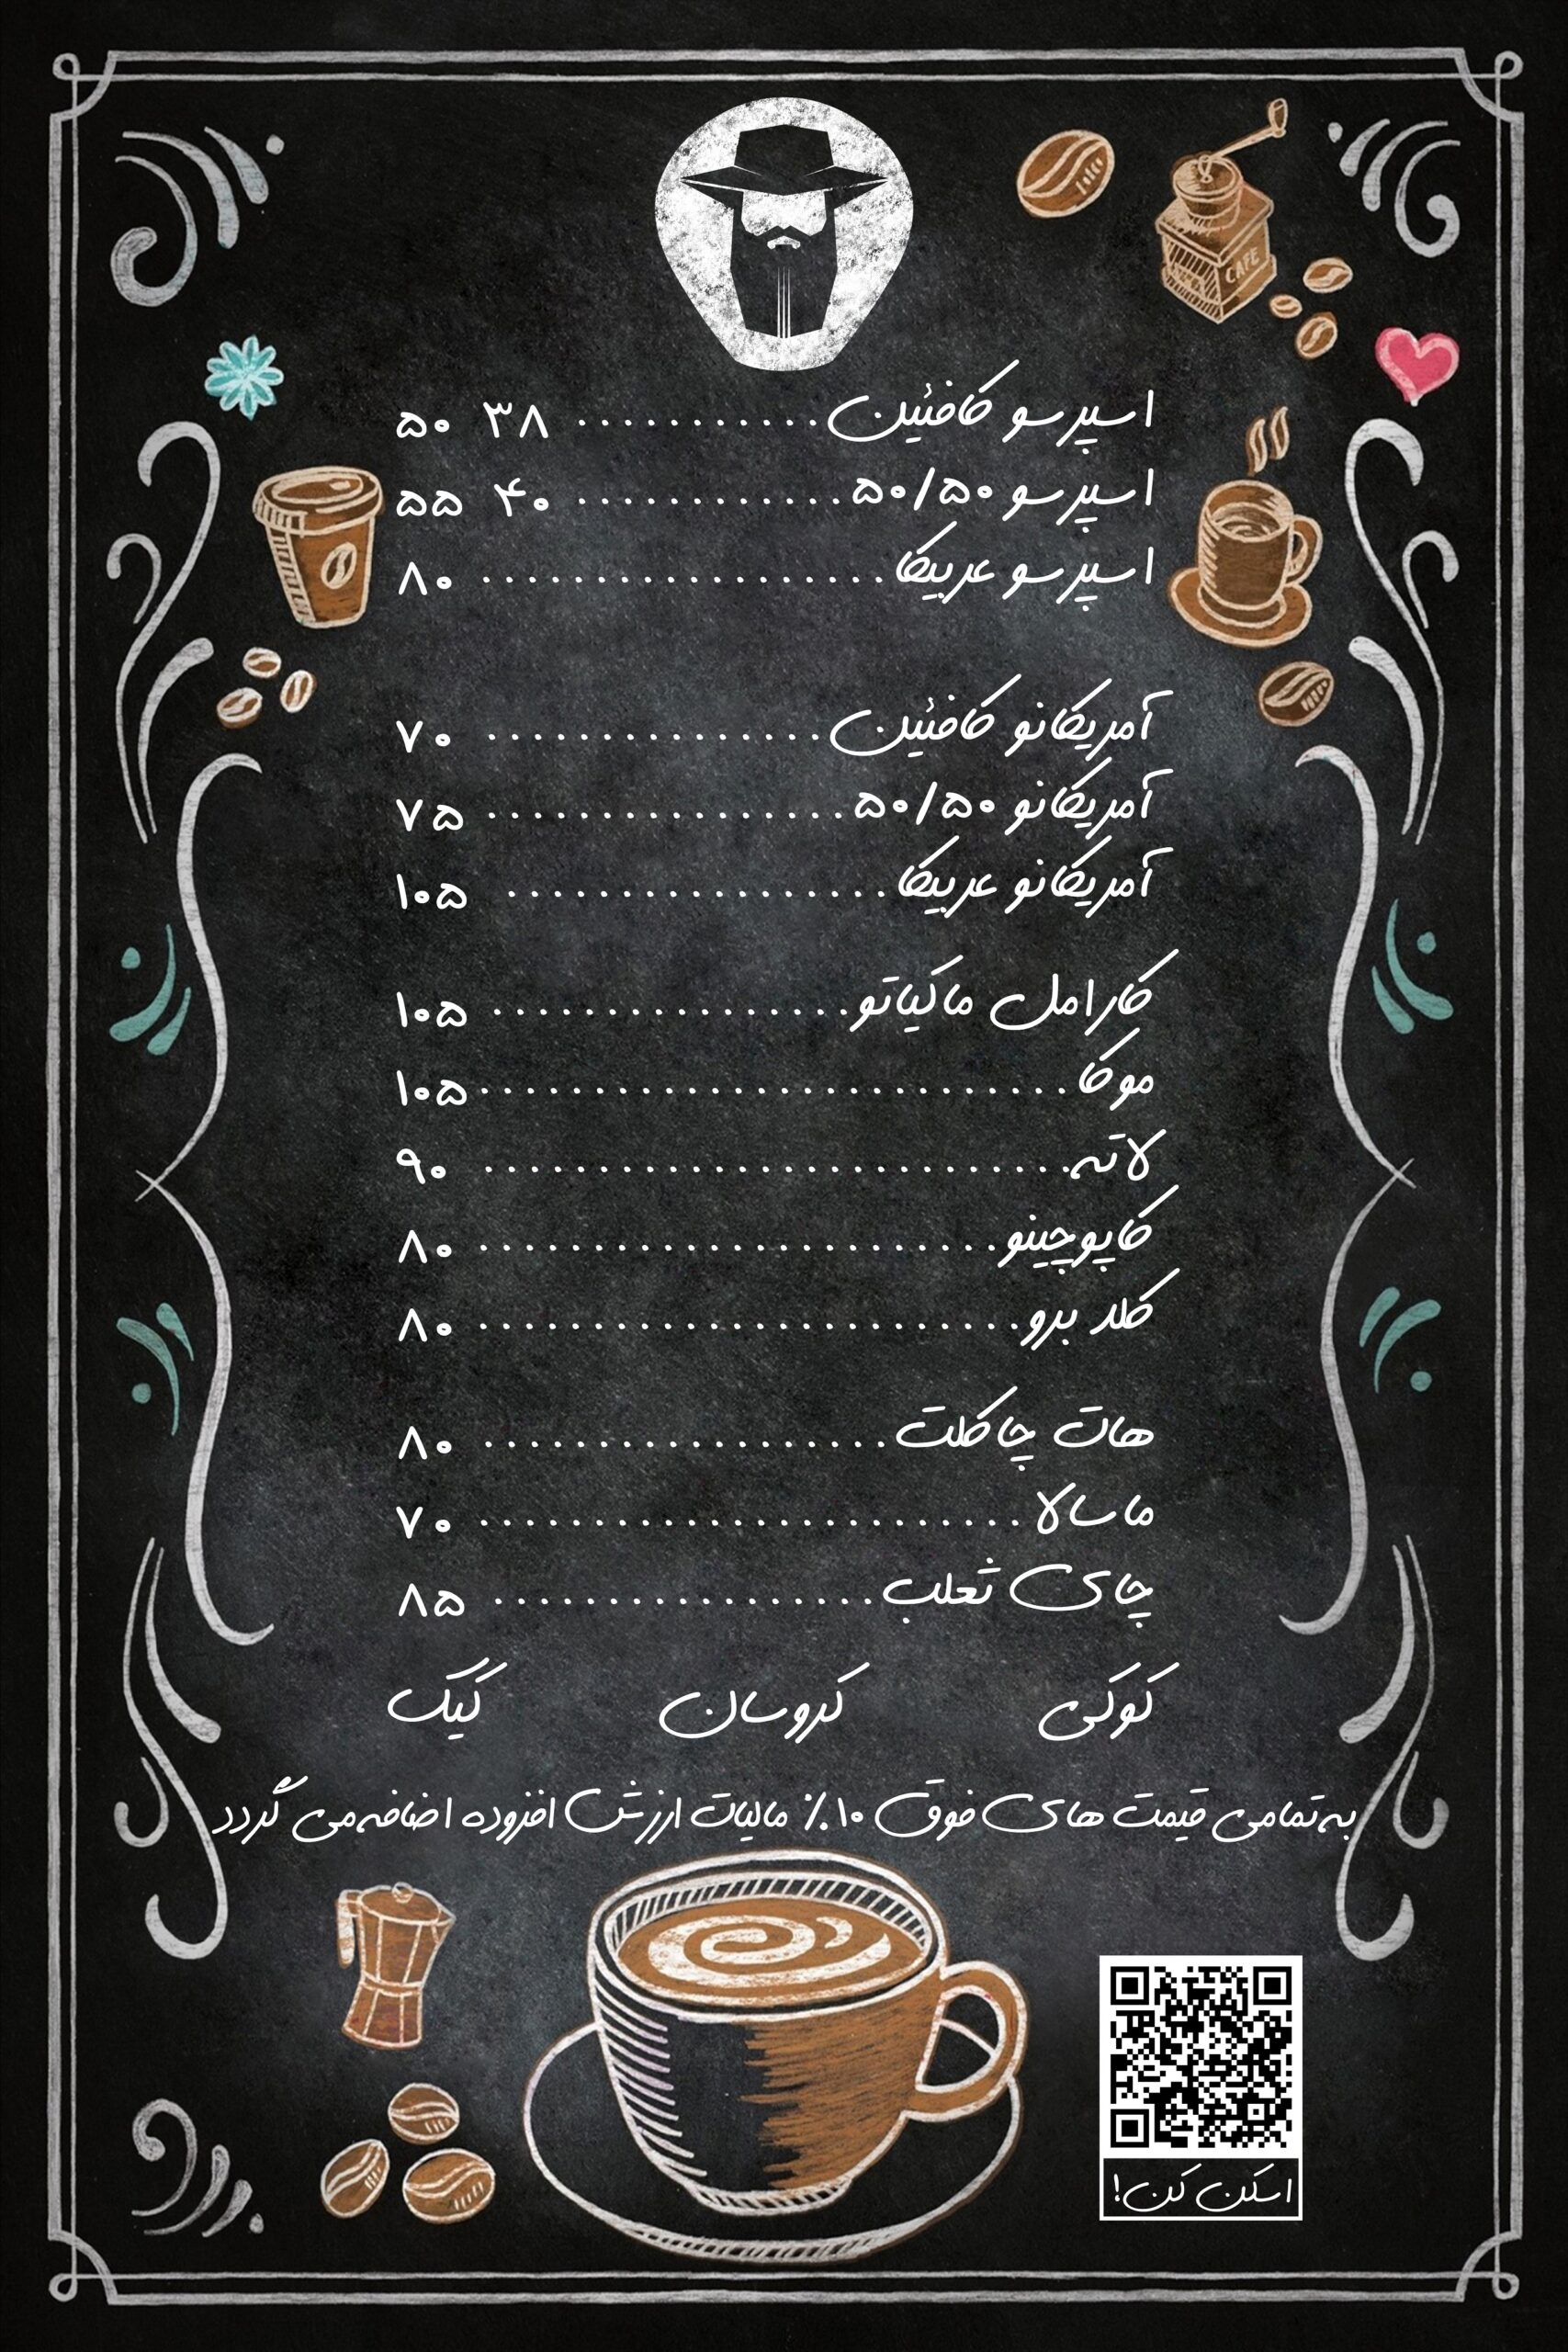 اسپرسو کافئین........... ۳۸ ۵۰
اسپرسو ۵۰/۵۰............ ۴۰ ۵۵
اسپرسو عربیکا.................. ۸۰
آمریکانو کافئین............... ۷۰
آمریکانو ۵۰/۵۰................ ۷۵
آمریکانو عربیکا................. ۱۰۵
کارامل ماکیاتو................ ۱۰۵
موکا...........................۱۰۵
لاته........................... ۹۰
کاپوچینو........................ ۸۰
کلد برو......................... ۸۰
هات چاکلت.................. ۸۰
ماسالا......................... ۷۰
چای ثعلب................. ۸۵
کوکی کروسان کیک
به تمامی قیمت های فوق ۱۰٪ مالیات ارزش افزوده اضافه می گردد
CAFE
اسکن کن!